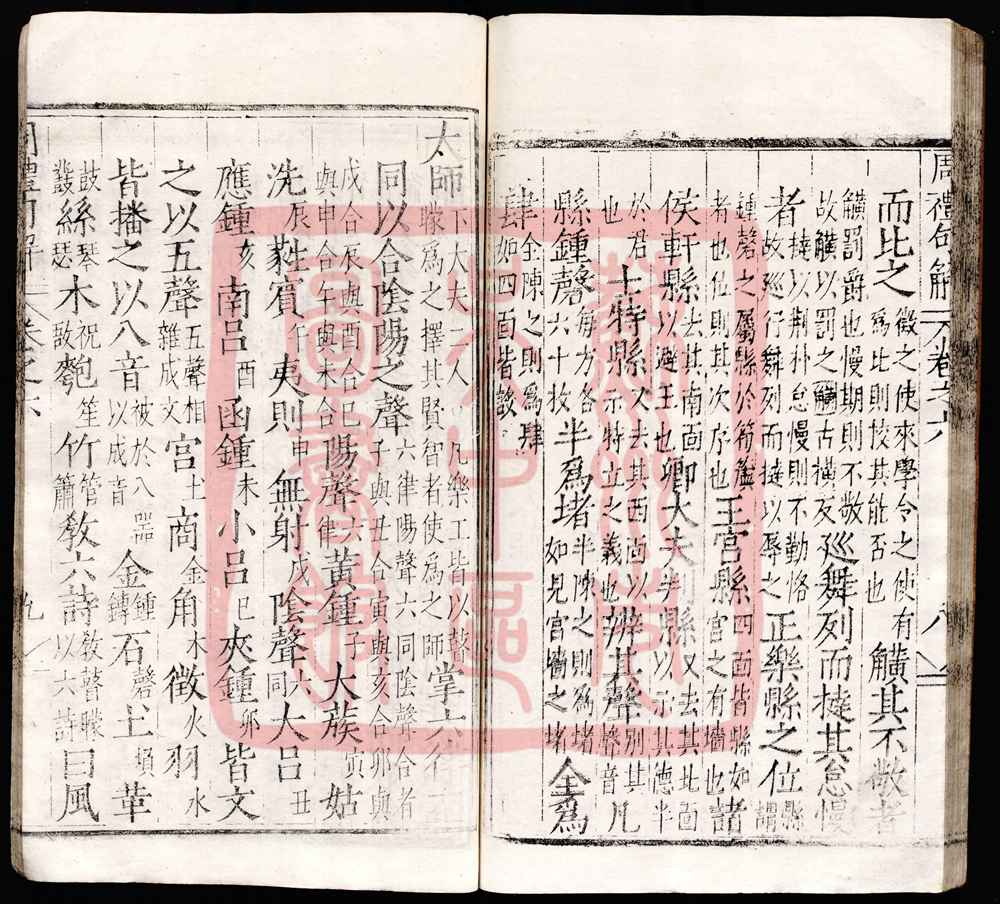 周禮句解 卷之六 八
而比之徵之使來學令之使有爲比則挍其能否也觵其不敬者
觵罰爵也慢期則不敬故觵以罰之觵古橫反廵舞列而撻其怠慢
者撻以荆扑怠慢則不勤恪故廵行舞列而撻以辱之正樂縣之位縣謂
鍾磬之屬縣於筍簴者也位則其次序也王宮縣四面皆縣如宮之有墻也諸
侯軒縣去其南面以避王也卿大夫判縣又去其北面以示其德半
於君也士特縣又去其西面以示特立之義也辨其聲辨別其聲音凡
縣鍾磬每方各六十枚半爲堵半陳之則爲堵如見宮墻之堵全爲
肆全陳之則爲肆
肆如四面皆設
太師下大夫二人凡樂工皆以瞽矇爲之擇其賢智者使爲之師掌六
同以合陰陽之聲六律陽聲六同陰聲合者子與丑合寅與亥合卯與
戌合辰與酉合巳與申合午與未合陽聲六律黃鍾子大蔟寅姑
洗辰蕤賓午夷則申無射戌陰聲六同大呂丑
應鍾亥南呂酉函鍾未小呂巳夾鍾卯皆文
之以五聲五聲相雜成文宮土商金角木徵火羽水
皆播之以八音被於八器以成音金鍾鎛石磬土塤革
鼓鼗絲琴瑟木柷敔匏笙竹管簫敎六詩敎瞽矇以六詩曰風
周禮句解 卷之六 九